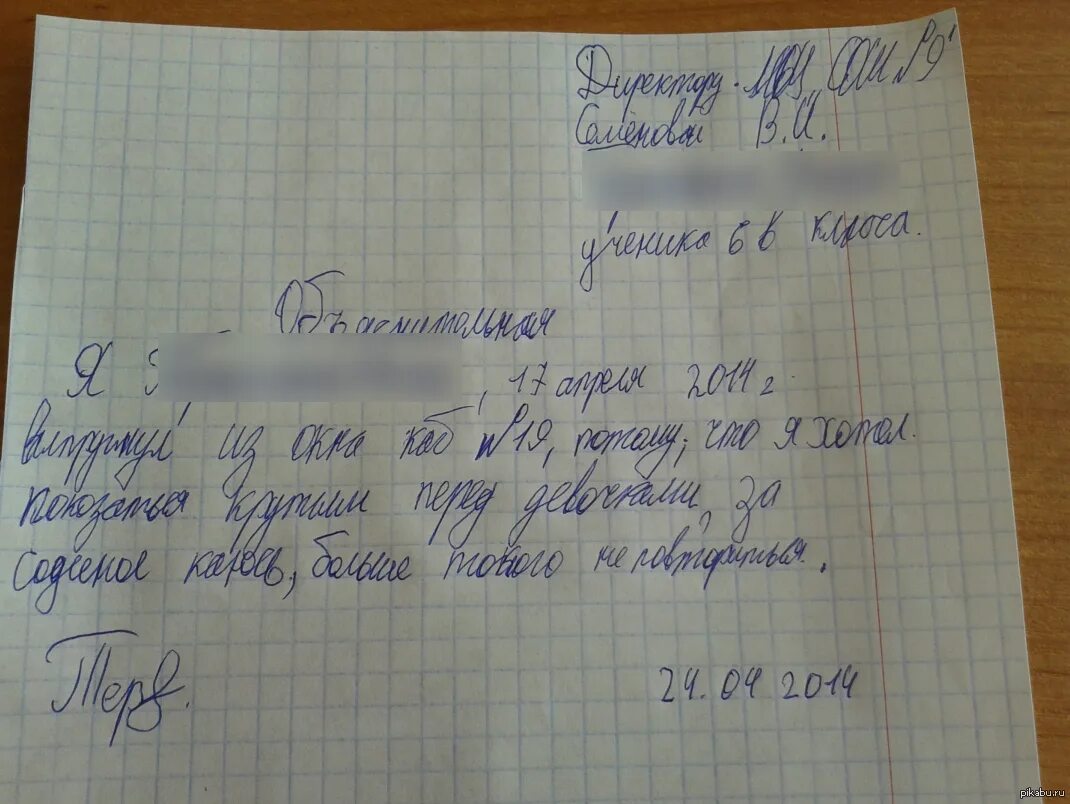 Директору МОУ СОШ №9
Семёновой В.И.
ученика 6 в класса.
Объяснительная
Я , 17 апреля 2014 г
выпрыгнул из окна каб №19, потому, что я хотел.
показаться крутым перед девочками, за
содеяное каюсь, больше токого не повториться.
Терв.
24.04 2014
pikabu.ru